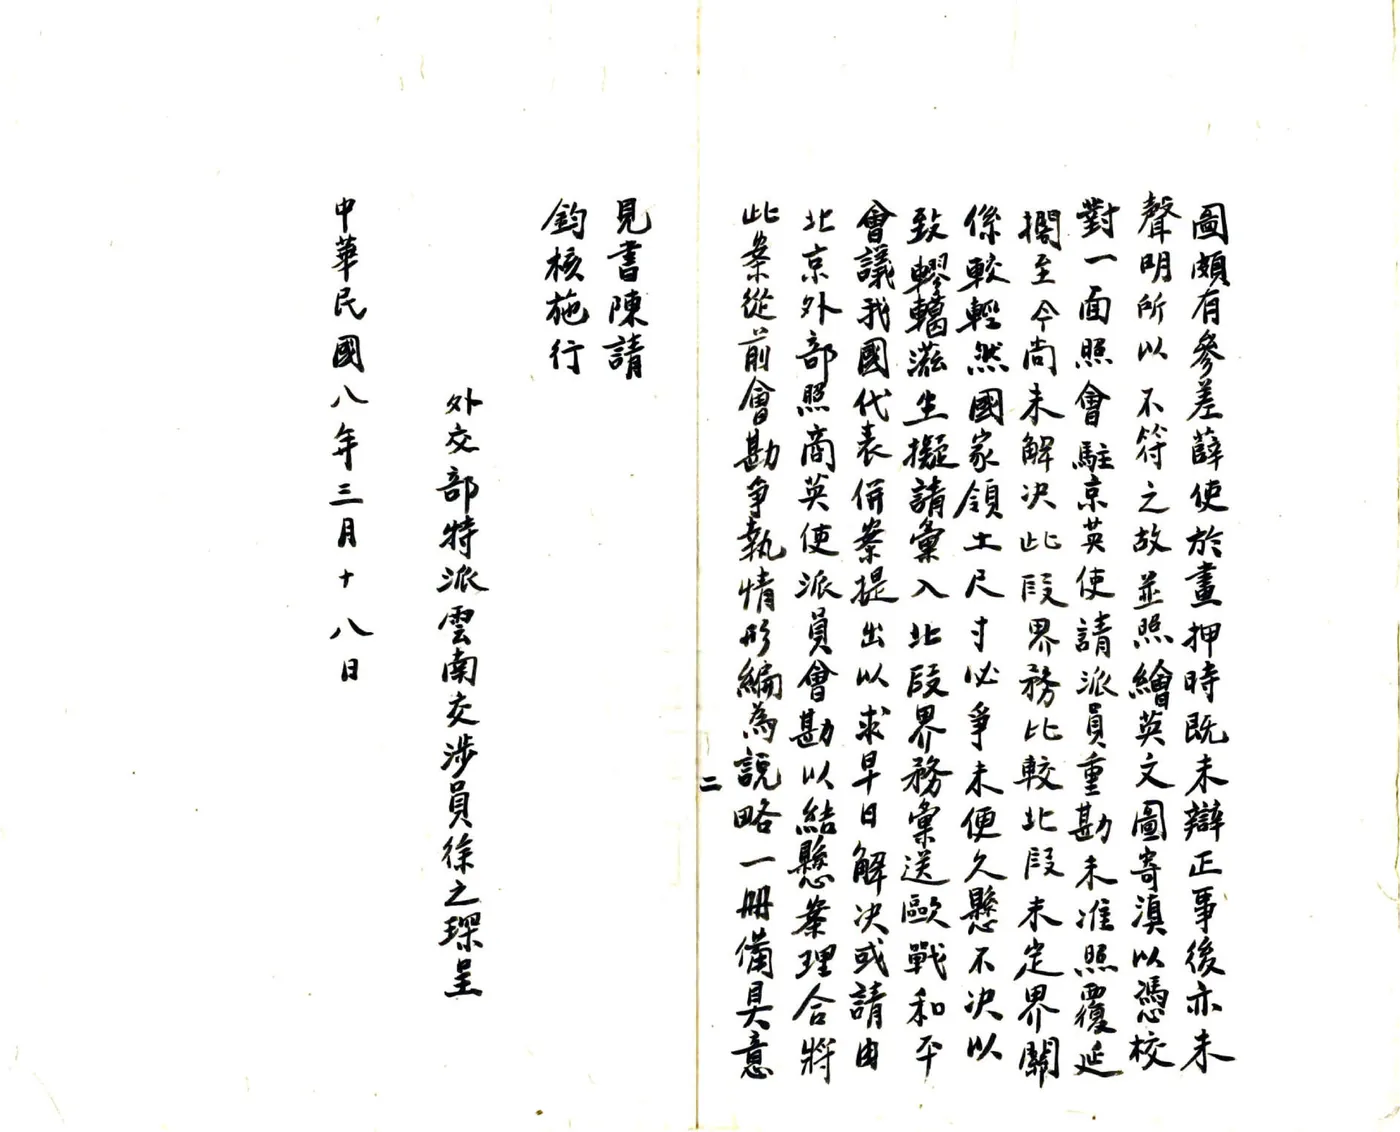 圖頗有參差薛使於畫押時既未辯正事後亦未
聲明所以不符之故並照繪英文圖寄滇以憑校
對一面照會駐京英使請派員重勘未准照覆延
擱至今尚未解決此段界務比較北段未定界關
係較輕然國家領土尺寸必爭未便久懸不決以
致轇轕滋生擬請彙入北段界務彙送歐戰和平
會議我國代表併案提出以求早日解決或請由
北京外部照商英使派員會勘以結懸案理合將
此案從前會勘爭執情形編為說略一冊備具意
二
見書陳請
鈞核施行
外交部特派雲南交涉員徐之琛呈
中華民國八年三月十八日